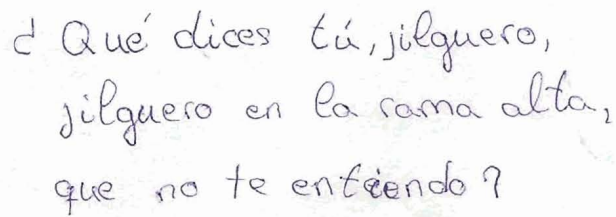 ¿Qué dices tú, jilguero,
jilguero en la rama alta,
que no te entiendo?